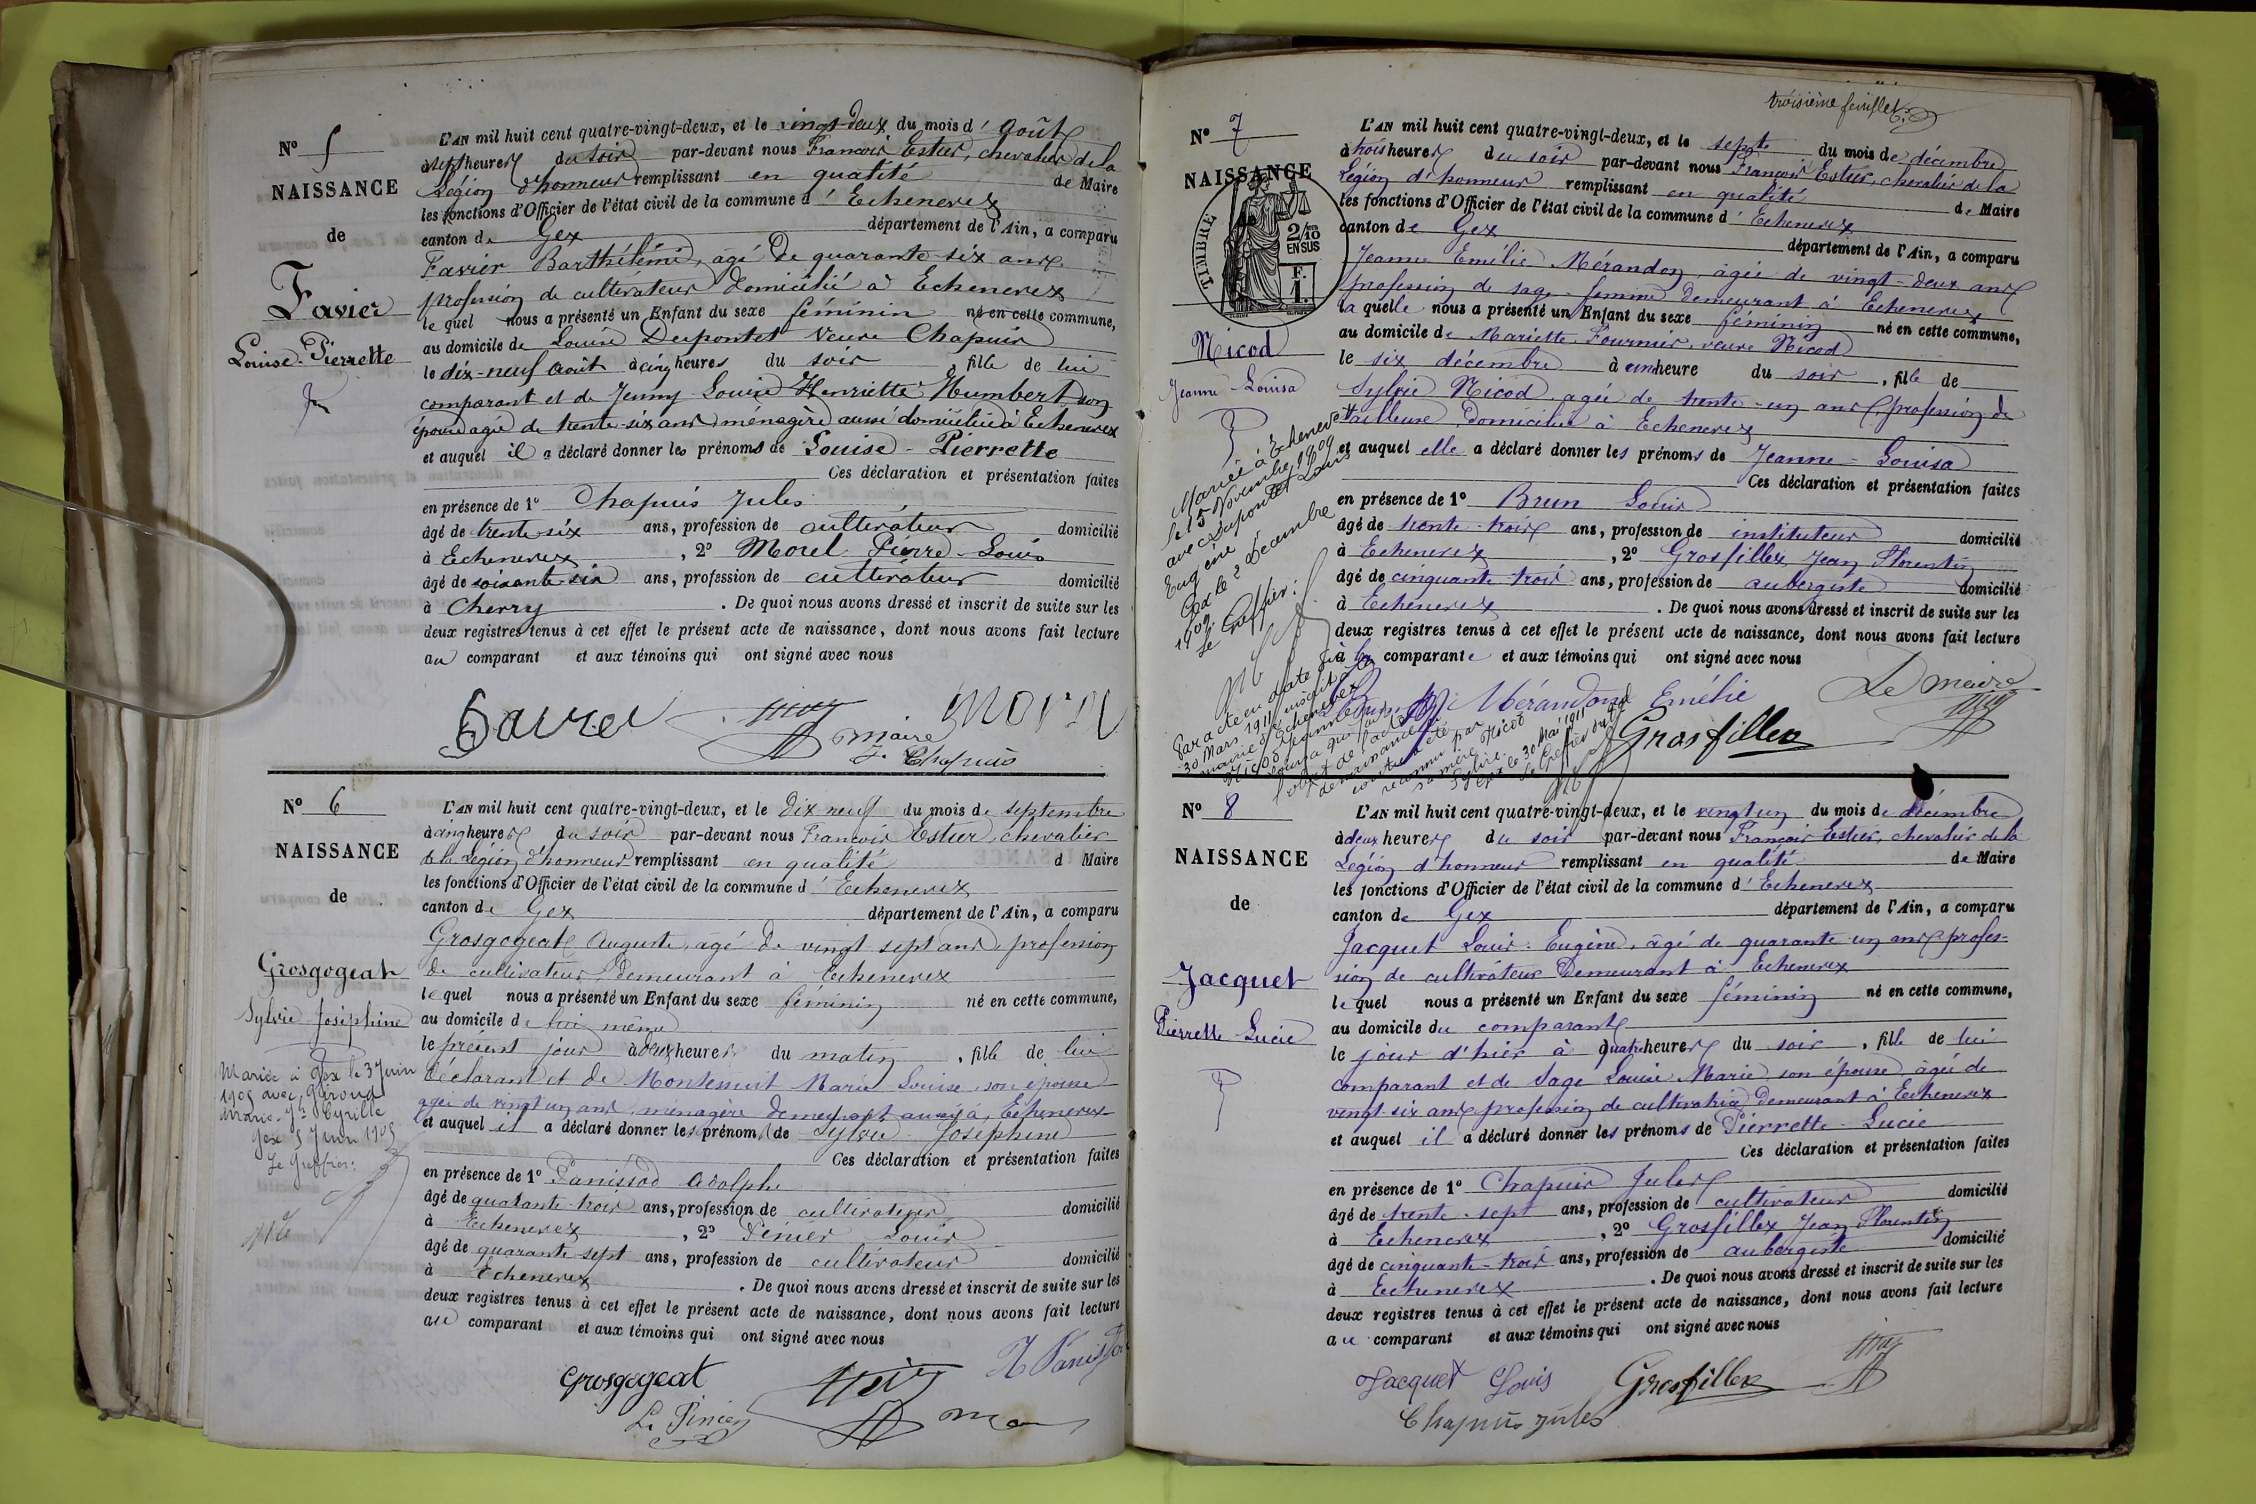 N° 5
NAISSANCE
de
Favier
Louise-Pierrette
L'AN mil huit cent quatre-vingt-deux, et le vingt-deux du mois d'Août
à sept heures du soir par-devant nous François Estier, chevalier de la
Légion d'honneur remplissant en qualité de Maire
les fonctions d'Officier de l'état civil de la commune d'Echenevex
canton de Gex département de l'Ain, a comparu
Favier Barthélémi, agé de quarante-six ans
profession de cultivateur domicilié à Echenevex
lequel nous a présenté un Enfant du sexe féminin né en cette commune,
au domicile de Louise Dupontet Veuve Chapuis
le dix-neuf Août à cinq heures du soir fille de lui
comparant et de Jenny Louise Henriette Humbert son
épouse agée de trente-six ans ménagère aussi domiciliée à Echenevex
et auquel il a déclaré donner les prénoms de Louise-Pierrette
Ces déclaration et présentation faites
en présence de 1° Chapuis Jules
âgé de trente-six ans, profession de cultivateur domicilié
à Echenevex, 2° Morel Pierre-Louis
âgé de soixante-six ans, profession de cultivateur domicilié
à Cherry. De quoi nous avons dressé et inscrit de suite sur les
deux registres tenus à cet effet le présent acte de naissance, dont nous avons fait lecture
au comparant et aux témoins qui ont signé avec nous
Favier Morel
maire
J. Chapuis
N° 6
NAISSANCE
de
Grosgogeat
Sylvie-Joséphine
Mariée à Gex le 3 Juin
1905 avec Giroud
Marie-Jh Cyrille
Gex 5 Juin 1905
Le Greffier:
L'AN mil huit cent quatre-vingt-deux, et le dix neuf du mois de septembre
à cinq heures du soir par-devant nous François Estier, chevalier
de la Légion d'honneur remplissant en qualité d Maire
les fonctions d'Officier de l'état civil de la commune d'Echenevex
canton de Gex département de l'Ain, a comparu
Grosgogeat Auguste, agé de vingt sept ans, profession
de cultivateur demeurant à Echenevex
lequel nous a présenté un Enfant du sexe féminin né en cette commune,
au domicile de lui même
le présent jour à deux heures du matin, fille de lui
déclarant et de Montessuit Marie Louise, son épouse
agée de vingt un ans, ménagère demeurant aussi à Echenevex
et auquel il a déclaré donner les prénoms de Sylvie Joséphine
Ces déclaration et présentation faites
en présence de 1° Panissod Adolphe
âgé de quarante-trois ans, profession de cultivateur domicilié
à Echenevex, 2° Pinier Louis
âgé de quarante sept ans, profession de cultivateur domicilié
à Echenevex. De quoi nous avons dressé et inscrit de suite sur les
deux registres tenus à cet effet le présent acte de naissance, dont nous avons fait lecture
au comparant et aux témoins qui ont signé avec nous
Grosgogeat A Panissod
L. Pinier
troisième feuillet
N° 7
NAISSANCE
TIMBRE
2/10 EN SUS
F. 1.
Nicod
Jeanne-Louisa
Mariée à Echenevex
le 15 Novembre 1909
avec Dupontet Louis
Eugène
Gex le 2 Decembre
1909.
Le Greffier:
Par acte en date du
30 Mars 1911 inscrit à la
mairie d'Echenevex
Nicod Jeanne
Louisa qui fait
l'objet de l'acte
ci-contre a été
reconnue par
sa mère Nicod
Sylvie.
Gex le 30 Mai 1911
Le Greffier
L'AN mil huit cent quatre-vingt-deux, et le sept du mois de décembre
à trois heures du soir par-devant nous François Estier, chevalier de la
Légion d'honneur remplissant en qualité de Maire
les fonctions d'Officier de l'état civil de la commune d'Echenevex
canton de Gex département de l'Ain, a comparu
Jeanne Emélie Mérandon, âgée de vingt-deux ans
profession de sage-femme demeurant à Echenevex
laquelle nous a présenté un Enfant du sexe féminin né en cette commune,
au domicile de Mariette Fournier, veuve Nicod
le six décembre à une heure du soir, fille de
Sylvie Nicod agée de trente-un ans profession de
tailleuse domiciliée à Echenevex
et auquel elle a déclaré donner les prénoms de Jeanne-Louisa
Ces déclaration et présentation faites
en présence de 1° Brun Louis
âgé de trente-trois ans, profession de instituteur domicilié
à Echenevex, 2° Grosfillex Jean Florentin
âgé de cinquante-trois ans, profession de aubergiste domicilié
à Echenevex. De quoi nous avons dressé et inscrit de suite sur les
deux registres tenus à cet effet le présent acte de naissance, dont nous avons fait lecture
à la comparante et aux témoins qui ont signé avec nous
Mérandon Emélie Le maire
Grosfillex
N° 8
NAISSANCE
de
Jacquet
Pierrette-Lucie
L'AN mil huit cent quatre-vingt-deux, et le vingt un du mois de décembre
à deux heures du soir par-devant nous François Estier, chevalier de la
Légion d'honneur remplissant en qualité de Maire
les fonctions d'Officier de l'état civil de la commune d'Echenevex
canton de Gex département de l'Ain, a comparu
Jacquet Louis-Eugène, âgé de quarante-un ans profes-
sion de cultivateur demeurant à Echenevex
lequel nous a présenté un Enfant du sexe féminin né en cette commune,
au domicile du comparant
le jour d'hier à quatre heures du soir, fille de lui
comparant et de Sage Louise Marie son épouse, âgée de
vingt-six ans profession de cultivatrice demeurant à Echenevex
et auquel il a déclaré donner les prénoms de Pierrette-Lucie
Ces déclaration et présentation faites
en présence de 1° Chapuis Jules
âgé de trente-sept ans, profession de cultivateur domicilié
à Echenevex, 2° Grosfillex Jean Florentin
âgé de cinquante-trois ans, profession de aubergiste domicilié
à Echenevex. De quoi nous avons dressé et inscrit de suite sur les
deux registres tenus à cet effet le présent acte de naissance, dont nous avons fait lecture
au comparant et aux témoins qui ont signé avec nous
Jacquet Louis Grosfillex
Chapuis Jules